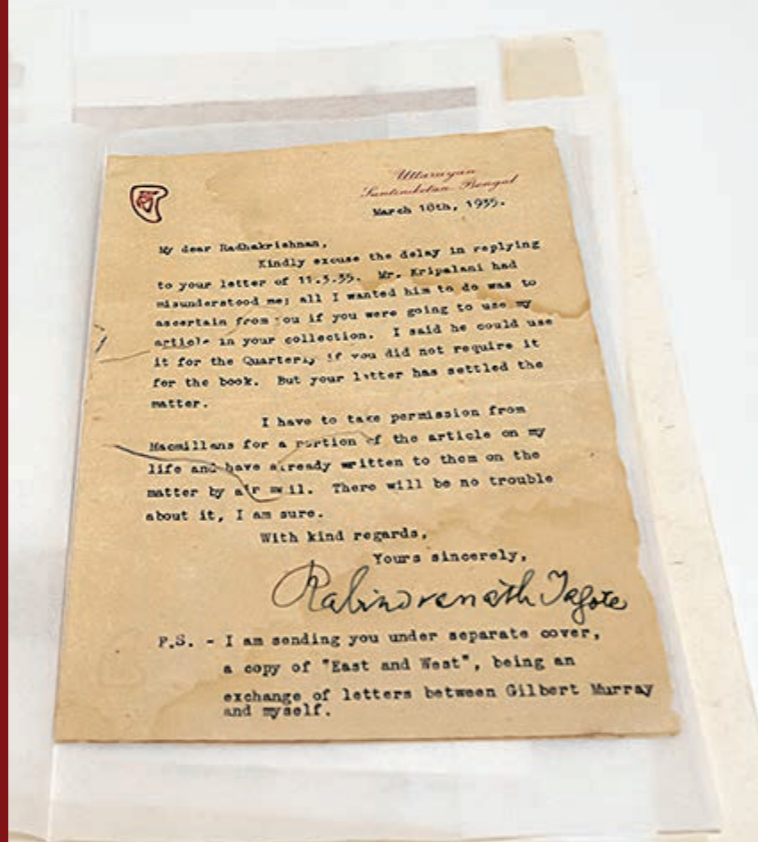 Uttarayan
Santiniketan Bengal
March 18th, 1935.
My dear Radhakrishnan,
Kindly excuse the delay in replying
to your letter of 11.3.35. Mr. Kripalani had
misunderstood me; all I wanted him to do was to
ascertain from you if you were going to use my
article in your collection. I said he could use
it for the Quarterly if you did not require it
for the book. But your letter has settled the
matter.
I have to take permission from
Macmillans for a portion of the article on my
life and have already written to them on the
matter by air mail. There will be no trouble
about it, I am sure.
With kind regards,
Yours sincerely,
Rabindranath Tagore
P.S. - I am sending you under separate cover,
a copy of "East and West", being an
exchange of letters between Gilbert Murray
and myself.